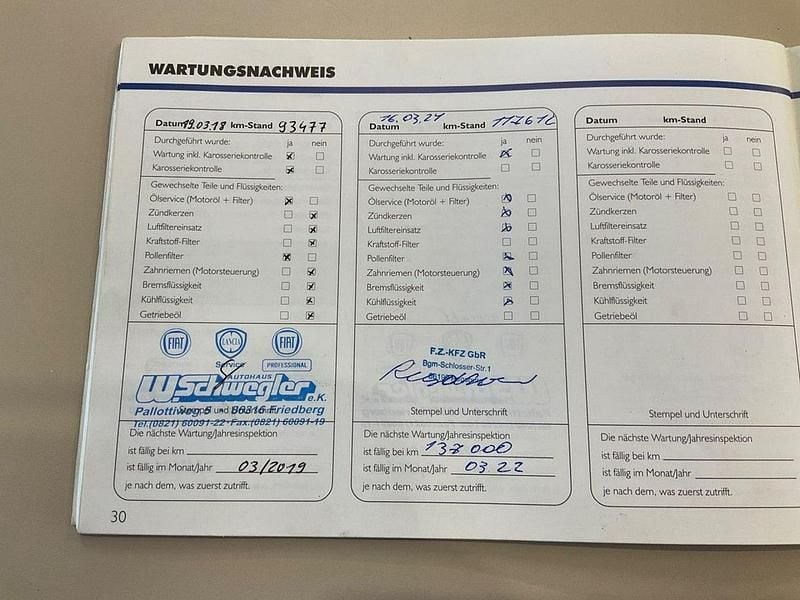 WARTUNGSNACHWEIS
Datum 19.03.18 km-Stand 93477
Durchgeführt wurde: ja nein
Wartung inkl. Karosseriekontrolle
Karosseriekontrolle
Gewechselte Teile und Flüssigkeiten:
Ölservice (Motoröl + Filter)
Zündkerzen
Luftfiltereinsatz
Kraftstoff-Filter
Pollenfilter
Zahnriemen (Motorsteuerung)
Bremsflüssigkeit
Kühlflüssigkeit
Getriebeöl
FIAT LANCIA FIAT
Service PROFESSIONAL
AUTOHAUS
W.Schwegler e.K.
Pallottiweg 5 - 86316 Friedberg
Tel.(0821) 60091-22 · Fax.(0821) 60091-19
Die nächste Wartung/Jahresinspektion
ist fällig bei km
ist fällig im Monat/Jahr 03/2019
je nach dem, was zuerst zutrifft.
30
Datum 16.03.21 km-Stand
Durchgeführt wurde: ja nein
Wartung inkl. Karosseriekontrolle
Karosseriekontrolle
Gewechselte Teile und Flüssigkeiten:
Ölservice (Motoröl + Filter)
Zündkerzen
Luftfiltereinsatz
Kraftstoff-Filter
Pollenfilter
Zahnriemen (Motorsteuerung)
Bremsflüssigkeit
Kühlflüssigkeit
Getriebeöl
F.Z.-KFZ GbR
Bgm-Schlosser-Str.1
Stempel und Unterschrift
Die nächste Wartung/Jahresinspektion
ist fällig bei km 137000
ist fällig im Monat/Jahr 03 22
je nach dem, was zuerst zutrifft.
Datum km-Stand
Durchgeführt wurde: ja nein
Wartung inkl. Karosseriekontrolle
Karosseriekontrolle
Gewechselte Teile und Flüssigkeiten:
Ölservice (Motoröl + Filter)
Zündkerzen
Luftfiltereinsatz
Kraftstoff-Filter
Pollenfilter
Zahnriemen (Motorsteuerung)
Bremsflüssigkeit
Kühlflüssigkeit
Getriebeöl
Stempel und Unterschrift
Die nächste Wartung/Jahresinspektion
ist fällig bei km
ist fällig im Monat/Jahr
je nach dem, was zuerst zutrifft.